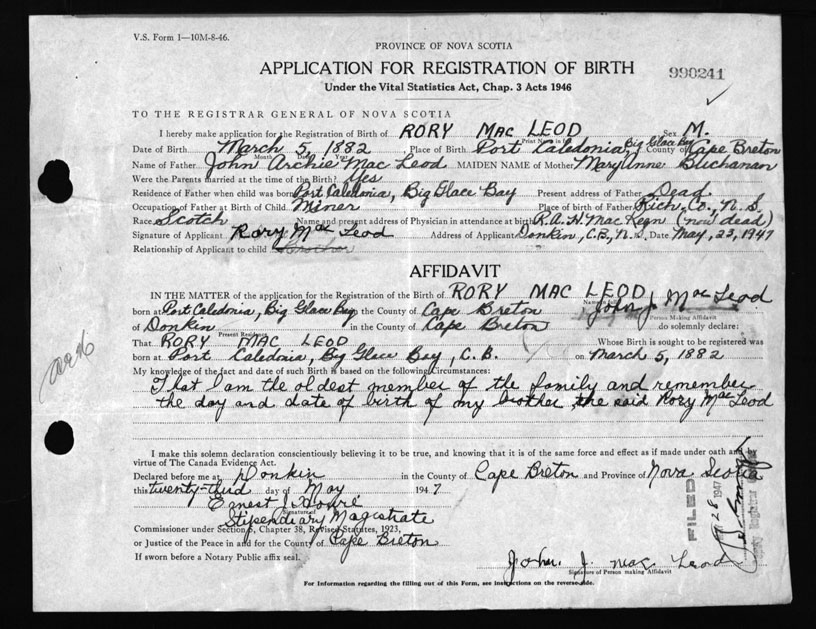 V.S. Form 1—10M-8-46.
PROVINCE OF NOVA SCOTIA
APPLICATION FOR REGISTRATION OF BIRTH
990241
Under the Vital Statistics Act, Chap. 3 Acts 1946
TO THE REGISTRAR GENERAL OF NOVA SCOTIA
I hereby make application for the Registration of Birth of RORY MAC LEOD Sex M.
Print Name in
Date of Birth March 5, 1882, Place of Birth Port Caledonia Big Glace Bay County of Cape Breton
Month Date Year
Name of Father John Archie Mac Leod MAIDEN NAME of Mother Mary Anne Buchanan
Were the Parents married at the time of Birth? Yes
Residence of Father when child was born Port Caledonia, Big Glace Bay Present address of Father Dead
Occupation of Father at Birth of Child Miner Place of birth of Father Rich. Co., N.S.
Race Scotch Name and present address of Physician in attendance at birth R.A.H. MacKeen (now dead)
Signature of Applicant Rory Mac Leod Address of Applicant Donkin, C.B., N.S. Date May, 23, 1947
Relationship of Applicant to child Brother
AFFIDAVIT
IN THE MATTER of the application for the Registration of the Birth of RORY MAC LEOD
Name in full
born at Port Caledonia, Big Glace Bay the County of Cape Breton John J. Mac Leod
Person Making Affidavit
of Donkin in the County of Cape Breton do solemnly declare:
Present Residence
That RORY MAC LEOD Whose Birth is sought to be registered was
born at Port Caledonia, Big Glace Bay, C.B. on March 5, 1882
My knowledge of the fact and date of such Birth is based on the following Circumstances:
That I am the oldest member of the family and remember
the day and date of birth of my brother, the said Rory Mac Leod
I make this solemn declaration conscientiously believing it to be true, and knowing that it is of the same force and effect as if made under oath and
virtue of The Canada Evidence Act.
Declared before me at Donkin in the County of Cape Breton and Province of Nova Scotia
this twenty-third day of May 1947
Ernest J.
Signature of
Stipendiary Magistrate
Commissioner under Section 6, Chapter 38, Revised Statutes, 1923,
or Justice of the Peace in and for the County of Cape Breton
If sworn before a Notary Public affix seal.
FILED
1947
Registrar
John. J. Mac Leod
Signature of Person making Affidavit
For Information regarding the filling out of this Form, see instructions on the reverse side.